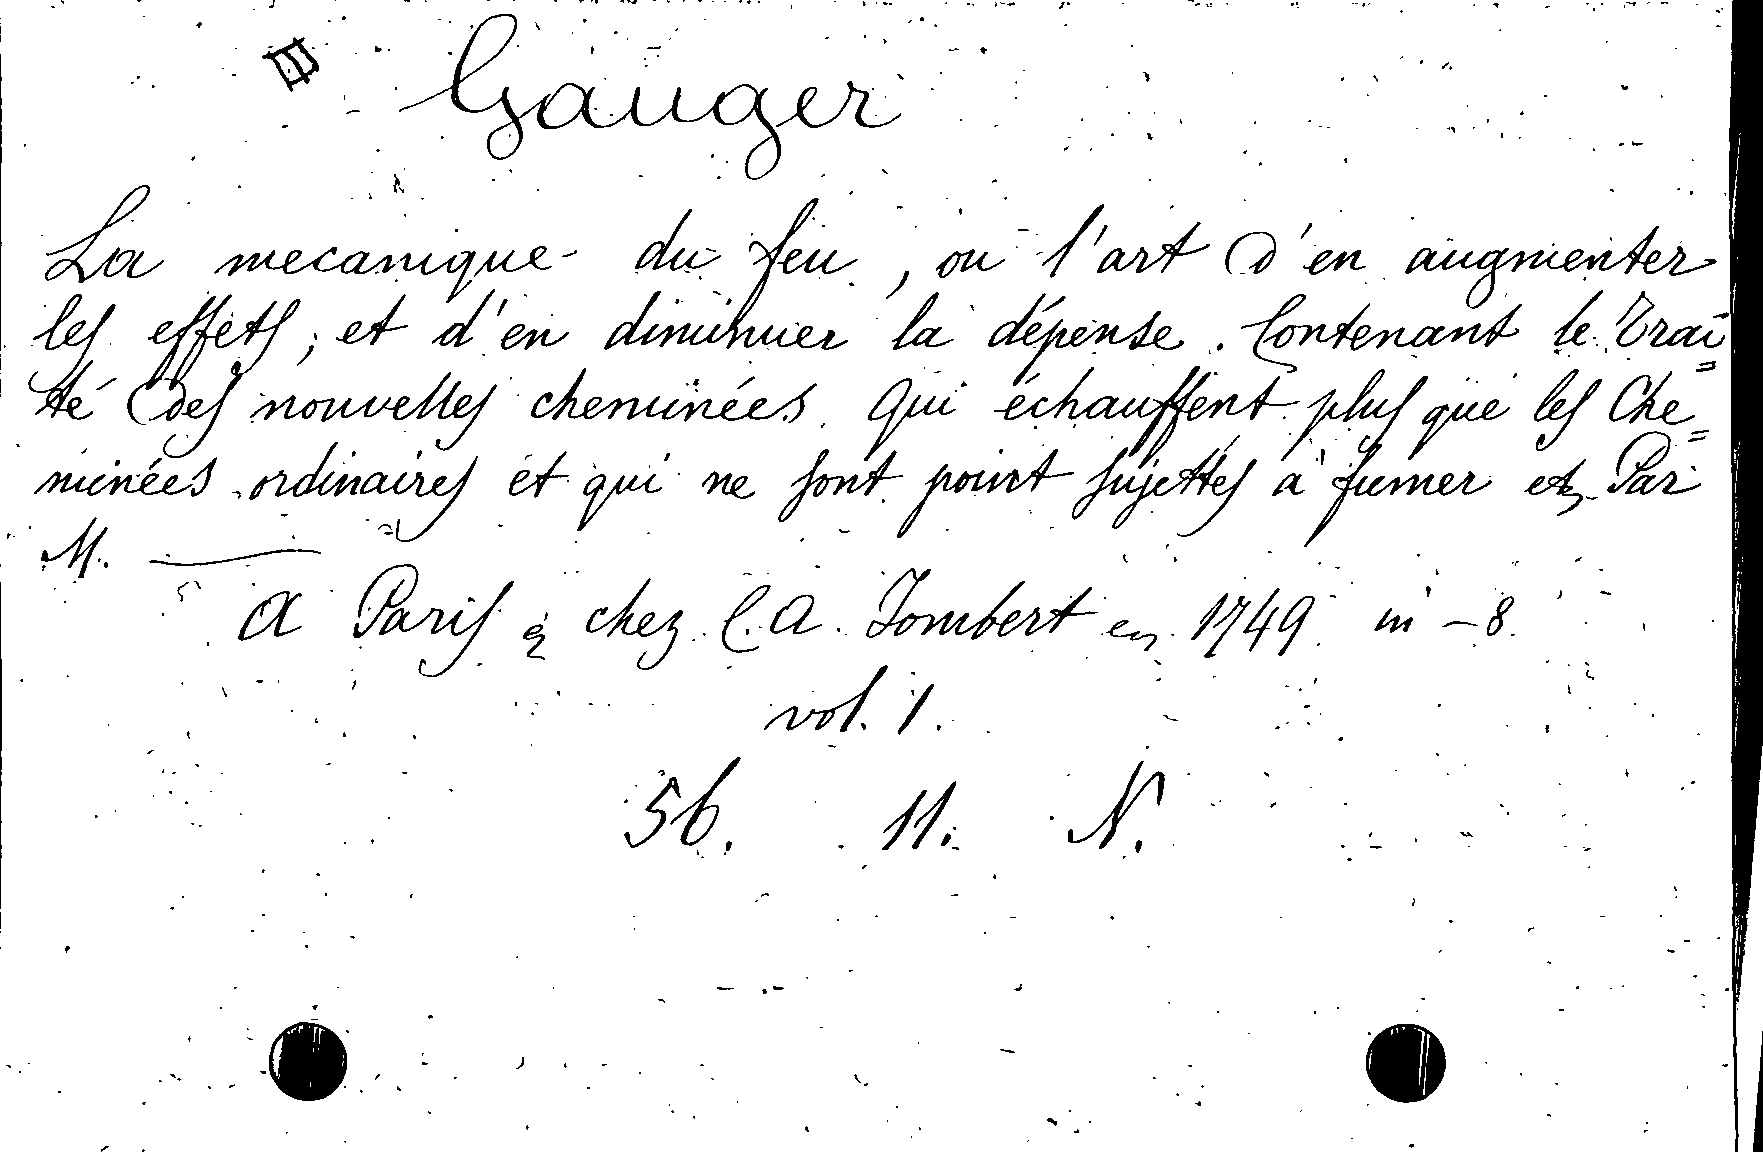 Gauger
La mecanique du feu, ou l'art d'en augmenter
les effets; et d'en diminuer la dépense. Contenant le Trai=
té des nouvelles cheminées qui échauffent plus que les Che=
minées ordinaires et qui ne sont point sujettes à fumer etc Par
M. —
A Paris chez C. A. Jombert en 1749 in -8
vol. 1.
56. 11. N.